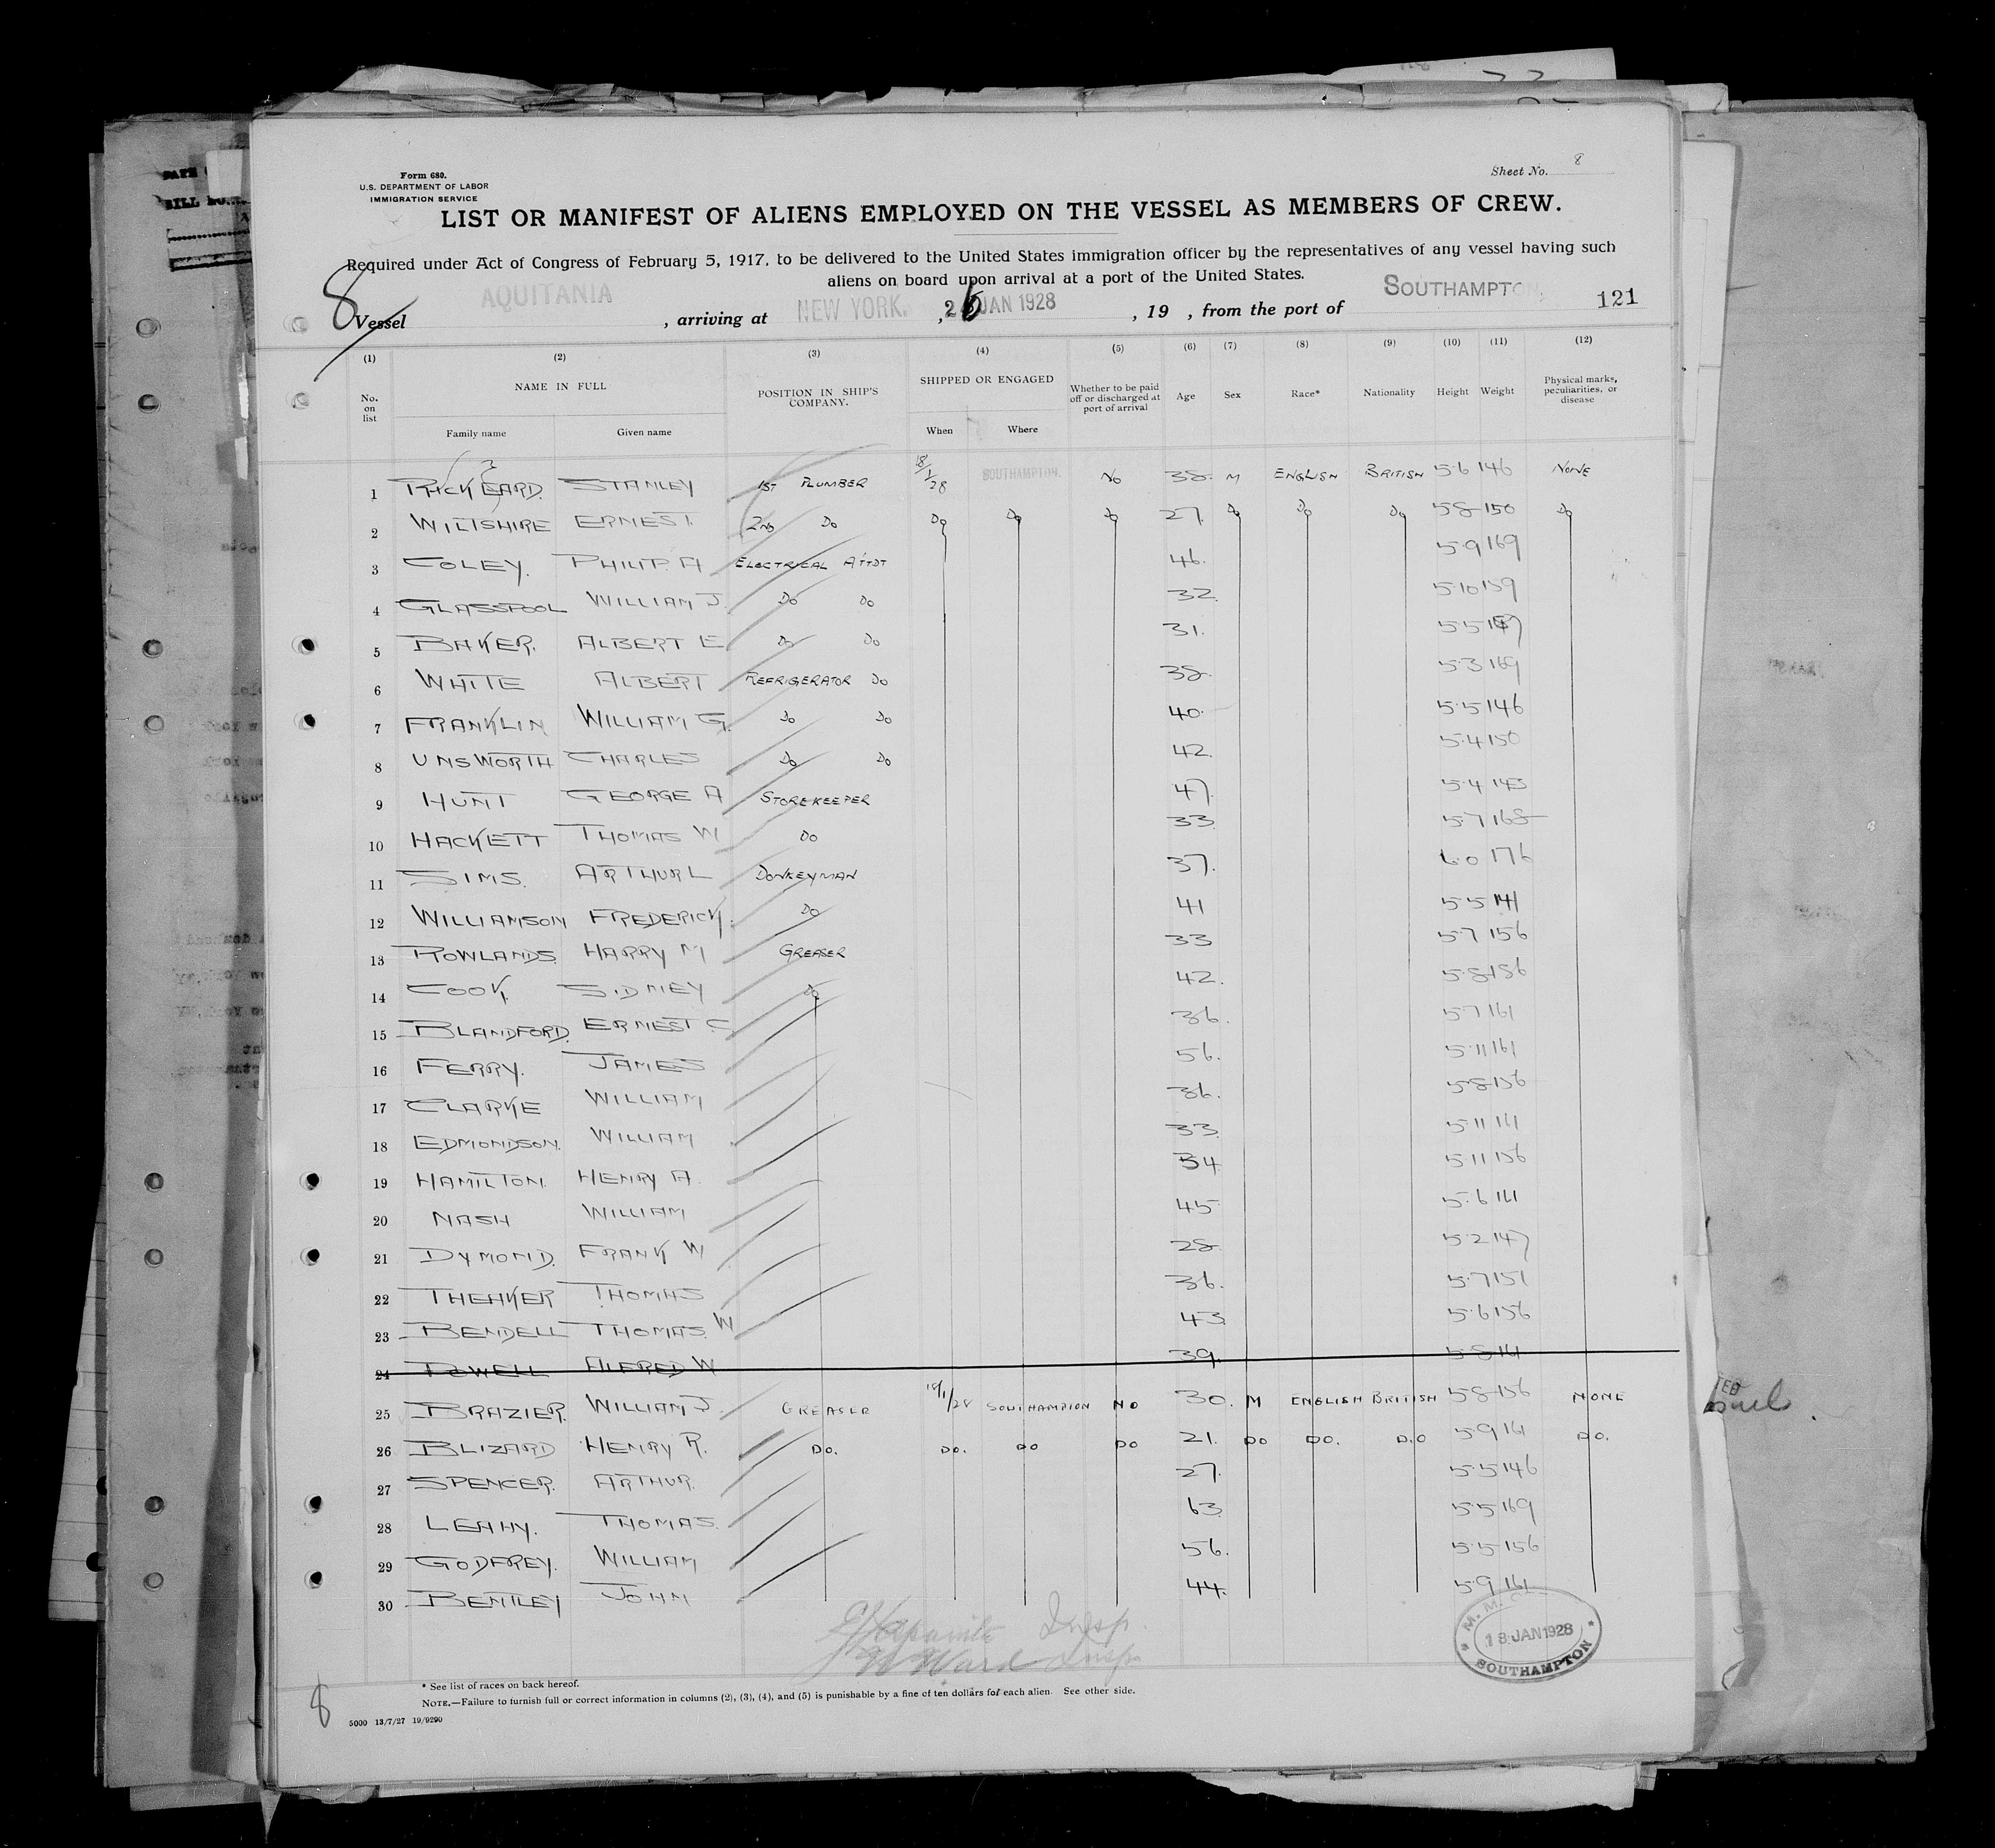 Form 680.
U.S. DEPARTMENT OF LABOR
IMMIGRATION SERVICE
Sheet No. 8
LIST OR MANIFEST OF ALIENS EMPLOYED ON THE VESSEL AS MEMBERS OF CREW.
Required under Act of Congress of February 5, 1917, to be delivered to the United States immigration officer by the representatives of any vessel having such
aliens on board upon arrival at a port of the United States.
8 Vessel AQUITANIA , arriving at NEW YORK. , 26 JAN 1928 , 19 , from the port of SOUTHAMPTON, 121
(1) (2) (3) (4) (5) (6) (7) (8) (9) (10) (11) (12)
No. on list NAME IN FULL Family name Given name POSITION IN SHIP'S COMPANY. SHIPPED OR ENGAGED When Where Whether to be paid off or discharged at port of arrival Age Sex Race* Nationality Height Weight Physical marks, peculiarities, or disease
1 RICKEARD. STANLEY 1ST PLUMBER 18/1/28 SOUTHAMPTON. NO 38. M ENGLISH BRITISH 5.6 146 NONE
2 WILTSHIRE ERNEST. 2ND DO DO DO DO 27. DO DO DO 5.8 150 DO
3 COLEY. PHILIP. A ELECTRICAL ATTDT 46. 5.9 169
4 GLASSPOOL WILLIAM J. DO DO 32. 5.10 159
5 BAKER. ALBERT E DO DO 31. 5.5
6 WHITE ALBERT REFRIGERATOR DO 38. 5.3 169
7 FRANKLIN WILLIAM G. DO DO 40. 5.5 146
8 UNSWORTH CHARLES DO DO 42. 5.4 150
9 HUNT GEORGE A STOREKEEPER 47. 5.4 143
10 HACKETT THOMAS W DO 33. 5.7 168
11 SIMS. ARTHUR L DONKEYMAN 37. 6.0 176
12 WILLIAMSON FREDERICK. DO 41 5.5 141
13 ROWLANDS. HARRY M GREASER 33 5.7 156
14 COOK. SIDNEY DO 42. 5.8 156
15 BLANDFORD. ERNEST C 36. 5.7 161
16 FERRY. JAMES 56. 5.11 161
17 CLARKE WILLIAM 36. 5.8 156
18 EDMONDSON. WILLIAM 33. 5.11 161
19 HAMILTON. HENRY A. 34. 5.11 156
20 NASH WILLIAM 45. 5.6 161
21 DYMOND. FRANK W 28. 5.2 147
22 THEAKER THOMAS 36. 5.7 151
23 BENDELL THOMAS. W 43. 5.6 156
24 POWELL ALFRED W 39. 5.8 161
25 BRAZIER. WILLIAM J. GREASER 18/1/28 SOUTHAMPTON NO 30. M ENGLISH BRITISH 5.8 156 NONE
26 BLIZARD HENRY R. DO. DO. DO DO 21. DO DO. DO 5.9 161 DO.
27 SPENCER. ARTHUR. 27. 5.5 146
28 LEAHY. THOMAS. 63. 5.5 169
29 GODFREY. WILLIAM 56. 5.5 156
30 BENTLEY JOHN 44. 5.9 161
Insp.
Ward Insp.
18 JAN 1928
SOUTHAMPTON
* See list of races on back hereof.
NOTE.—Failure to furnish full or correct information in columns (2), (3), (4), and (5) is punishable by a fine of ten dollars for each alien. See other side.
8
5000 13/7/27 19/9290